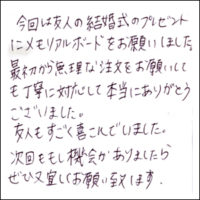 今回は友人の結婚式のプレゼント
にメモリアルボードをお願いしました。
最初から無理な注文をお願いして
も丁寧に対応して本当にありがとう
ございました。
友人もすごく喜こんでいました。
次回をもし機会がありましたら
ぜひ又宜しくお願い致します.